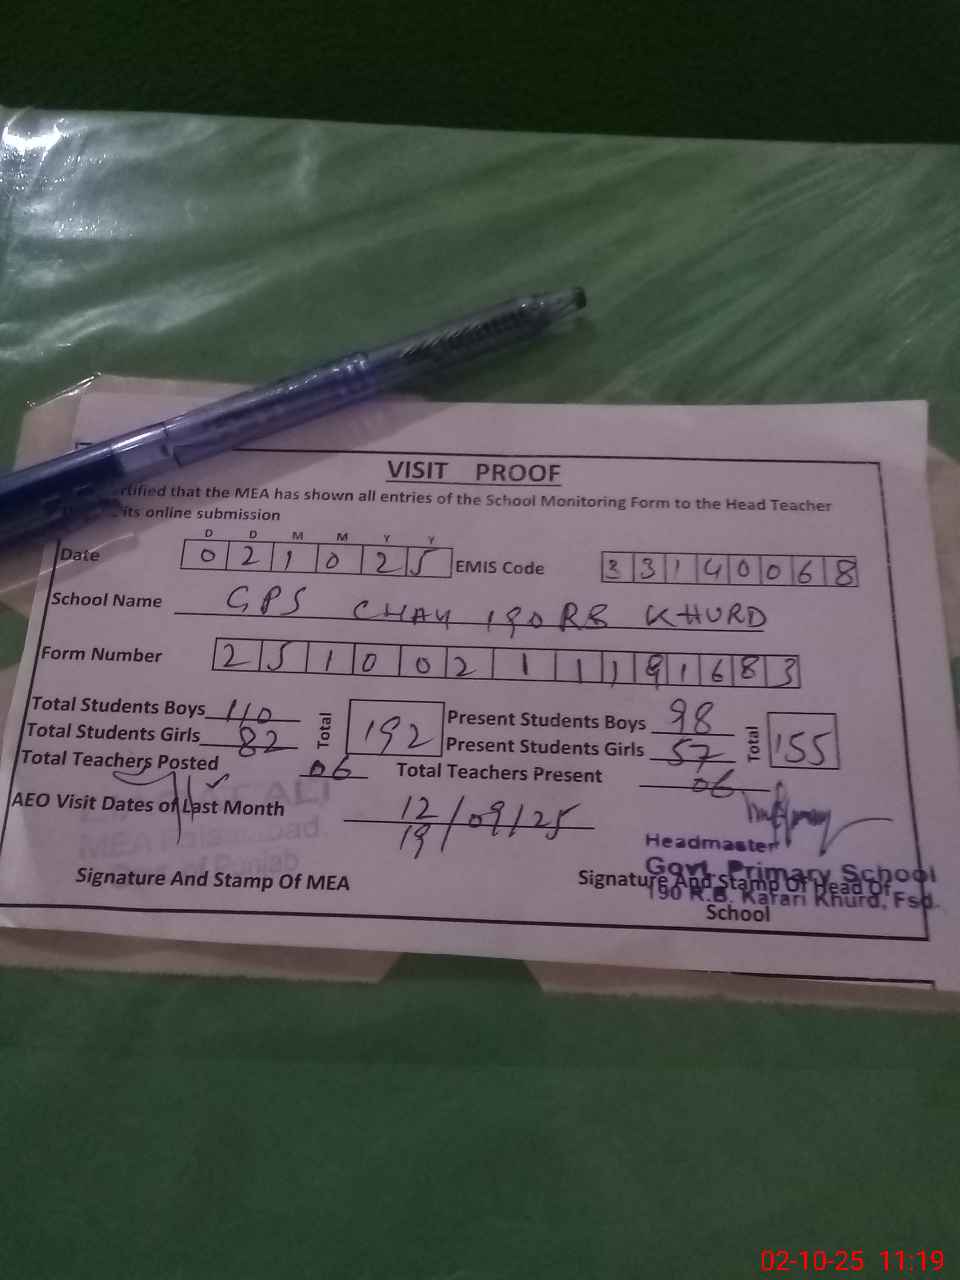 VISIT PROOF
rtified that the MEA has shown all entries of the School Monitoring Form to the Head Teacher
its online submission
D D M M Y Y
Date 0 2 1 0 2 5 EMIS Code 3 3 1 4 0 0 6 8
School Name GPS CHAK 190 RB KHURD
Form Number 2 5 1 0 0 2 1 1 1 9 1 6 8 3
Total Students Boys 110 Total 192 Present Students Boys 98 Total 155
Total Students Girls 82 Present Students Girls 57
Total Teachers Posted 06 Total Teachers Present 06
AEO Visit Dates of Last Month 12/19/09/25
MEA Faisalabad.
Govt. of Punjab
Headmaster
Govt. Primary School
190 R.B. Karari Khurd, Fsd.
Signature And Stamp Of MEA Signature And Stamp Of Head Of
School
02-10-25 11:19